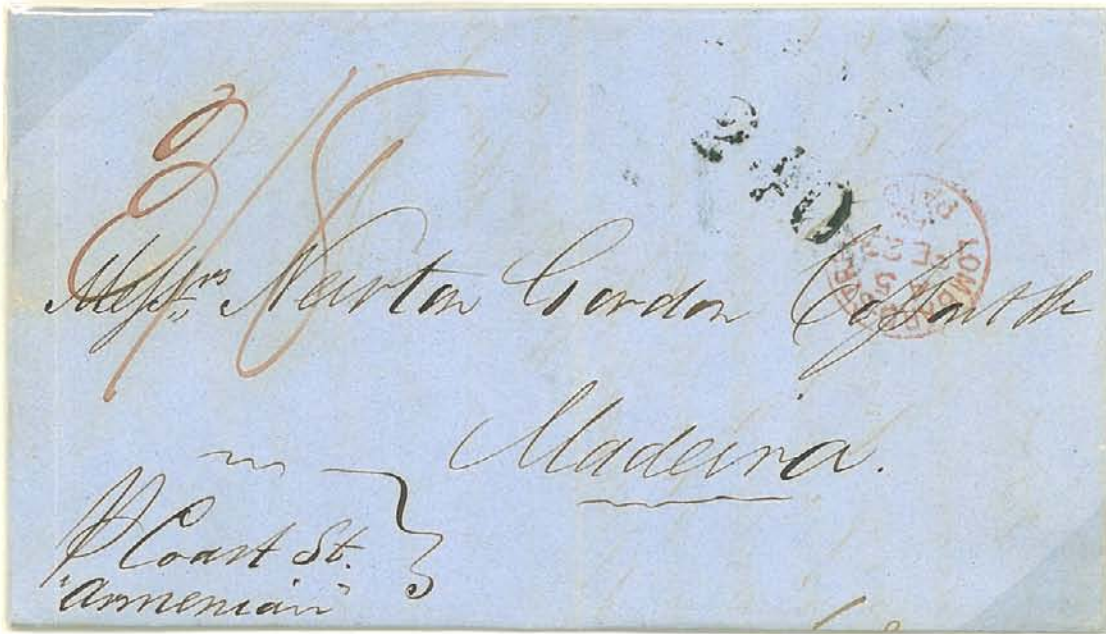 3/8
240
PAID
LOMBARD
Messrs. Newton Gordon Cossart &
Madeira.
p Coast St.
"Armenian"